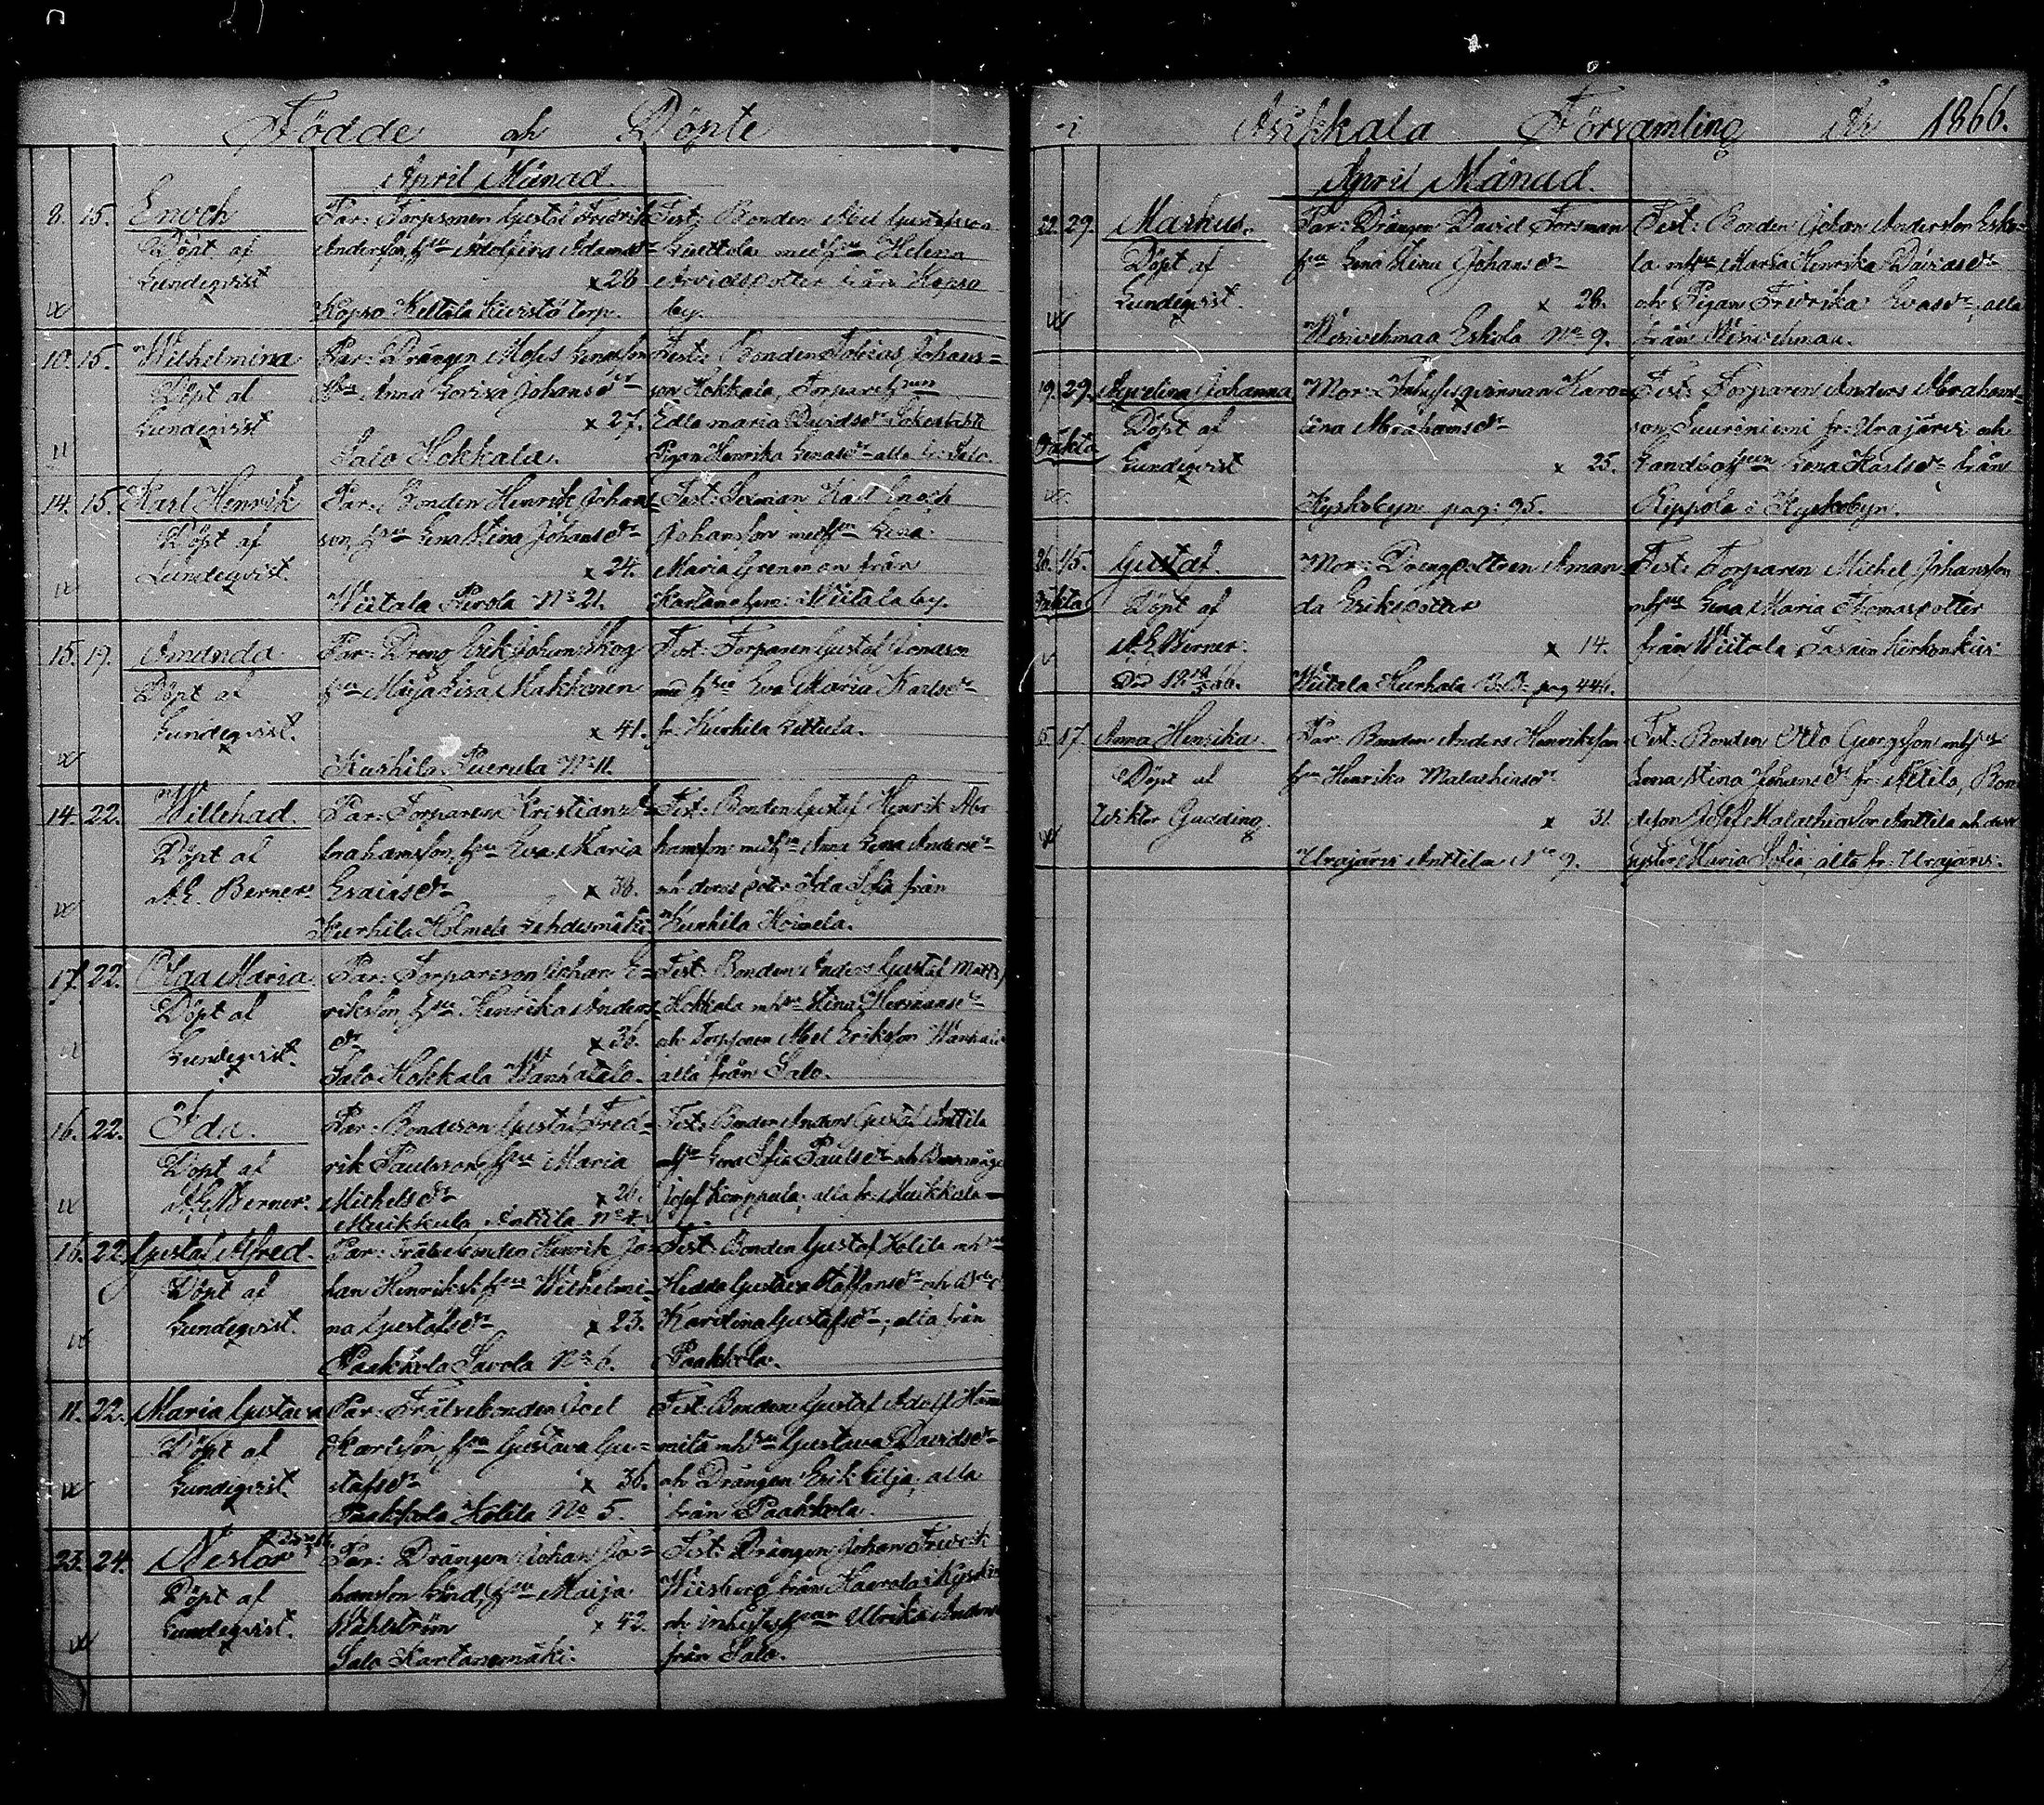 Födde och Döpte
April Månad.
8. 15. Enoch
Döpt af
Lundeqvist
Par: Torpsonen Gustaf Fredrik
Andersson, hu Adolfina Adamsdr
x 28
Kopso Kettola Kivistö torp.
Test: Bonden Abel Gustafsson
med hu Helena
Arvidsdotter från Kopso
by.
10. 15. Wilhelmina
Döpt af
Lundeqvist
Par: Drängen Moses
Hu Anna Lovisa Johansdr
x 27.
Salo Hokkala.
Test: Bonden Tobias Johans=
son Hokkala, Torpareh
Edla Maria Davidsdr
Pigan Henrika Enasdr alla fr: Salo.
14. 15. Karl Henrik
Döpt af
Lundeqvist.
Par: Bonden Henrik Johans
son, hu Lena Stina Johansdr
x 24.
Wiitala Pirola No 21.
Test: Sexman Karl Enoch
Johansson med hu Lena
Maria Grenman från
Wiitala by.
15. 19. Amanda
Döpt af
Lundeqvist.
Par: Dreng Erik Johan Skog
hu Maija Lisa Makkonen
x 41.
Kurhila No 11.
Test: Torparen Gustaf Jonasson
med hu Eva Maria Karlsdr
fr. Kurhila
14. 22. Willehad.
Döpt af
A.E. Berner.
Par: Torparen Kristian A=
brahamsson, hu Eva Maria
Esaiasdr x 38.
Kurhila Holmela Lehdesmäki.
Test: Bonden Gustaf Henrik Abr
hamsson med hu Anna Lena Andersdr
och deras dotter Ida Sofia från
Kurhila Hoimela.
17. 22. Olga Maria.
Döpt af
Lundeqvist.
Par: Torparsson Johan E=
riksson, hu Henrika Anders
dr x 36.
Salo Hokkala Wanhatalo.
Test: Bonden Anders Gustaf Matts
Hokkala mhu Stina Hermansdr
och Torparen Abel Eriksson
alla från Salo.
16. 22. Ida.
Döpt af
A.E. Berner.
Par: Bondeson Gustaf Fred=
rik Paulsson, hu Maria
Michelsdr x 26.
Muikkula Anttila No 4.
Test: Bonden Anders Gustaf Anttila
mhu Lena Sofia Paulsdr och
Josef Komppula; alla fr. Muikkula
16. 22. Gustaf Alfred.
Döpt af
Lundeqvist.
Par: Frälsebonden Henrik Jo
han Henriks. hu Wilhelmi=
na Gustafsdr x 23.
Paakkola Savola No 6.
Test: Bonden Gustaf Kolila mhu
Hedda Gustava Staffansdr och
Karolina Gustafsdr; alla från
Paakkola.
11. 22. Maria Gustava
Döpt af
Lundeqvist.
Par: Frälsebonden Joel
Karlsson, hu Gustava Gu=
stafsdr x 36.
Paakkola Kolila No 5.
Test: Bonden Gustaf Adolf
mhu Gustava Davidsdr
och Drängen Erik Lilja; alla
från Paakkola.
23. 24. Nestor
Döpt af
Lundeqvist.
Par: Drängen Johan Jo=
hansson Lind, hu Maija
Wahlström x 42.
Salo Kartanomäki.
Test: Drängen Johan Fredrik
från
och Ulrika
från Salo.
i Asikkala Församling År 1866.
April Månad.
22. 29. Markus.
Döpt af
Lundeqvist.
Par: Drängen David Forsman
hu Lena Stina Johansdr
x 28.
Wesivehmaa Eskola No 9.
Test: Bonden Johan Andersson Esko=
la mhu Maria Henrika Davidsdr
och Pigan Fredrika Evasdr, alla
från Wesivehmaa.
19. 29. Johanna
Oäkta
Döpt af
Lundeqvist
Mor: Inhysesqvinnan Karo=
lina Abrahamsdr
x 25.
Kyrkobyn pag: 95.
Test: Torparen Anders Abrahams=
son Suureniemi fr: Urajärvi och
Lena Karlsdr från
Reppola i Kyrkobyn.
Oäkta
Gustaf.
Döpt af
A.E. Berner.
Mor: Drengdottren Aman=
da Eriksdotter
x 14.
Wiitala Kurhala pag 446.
Test: Torparen Michel Johansson
mhu Lena Maria Thomasdotter
från Wiitala
5. 17. Anna Henrika.
Döpt af
Wiktor Gadding.
Par: Bonden Anders Henriksson
hu Henrika Malachiasdr
x 31.
Urajärvi Anttila No 9.
Test: Bonden Otto Georgsson mhu
Lena Stina Johansdr fr: Attila, Bon
deson Josef Malachiasson Anttila och dess
syster Maria Sofia, alla fr: Urajärvi.